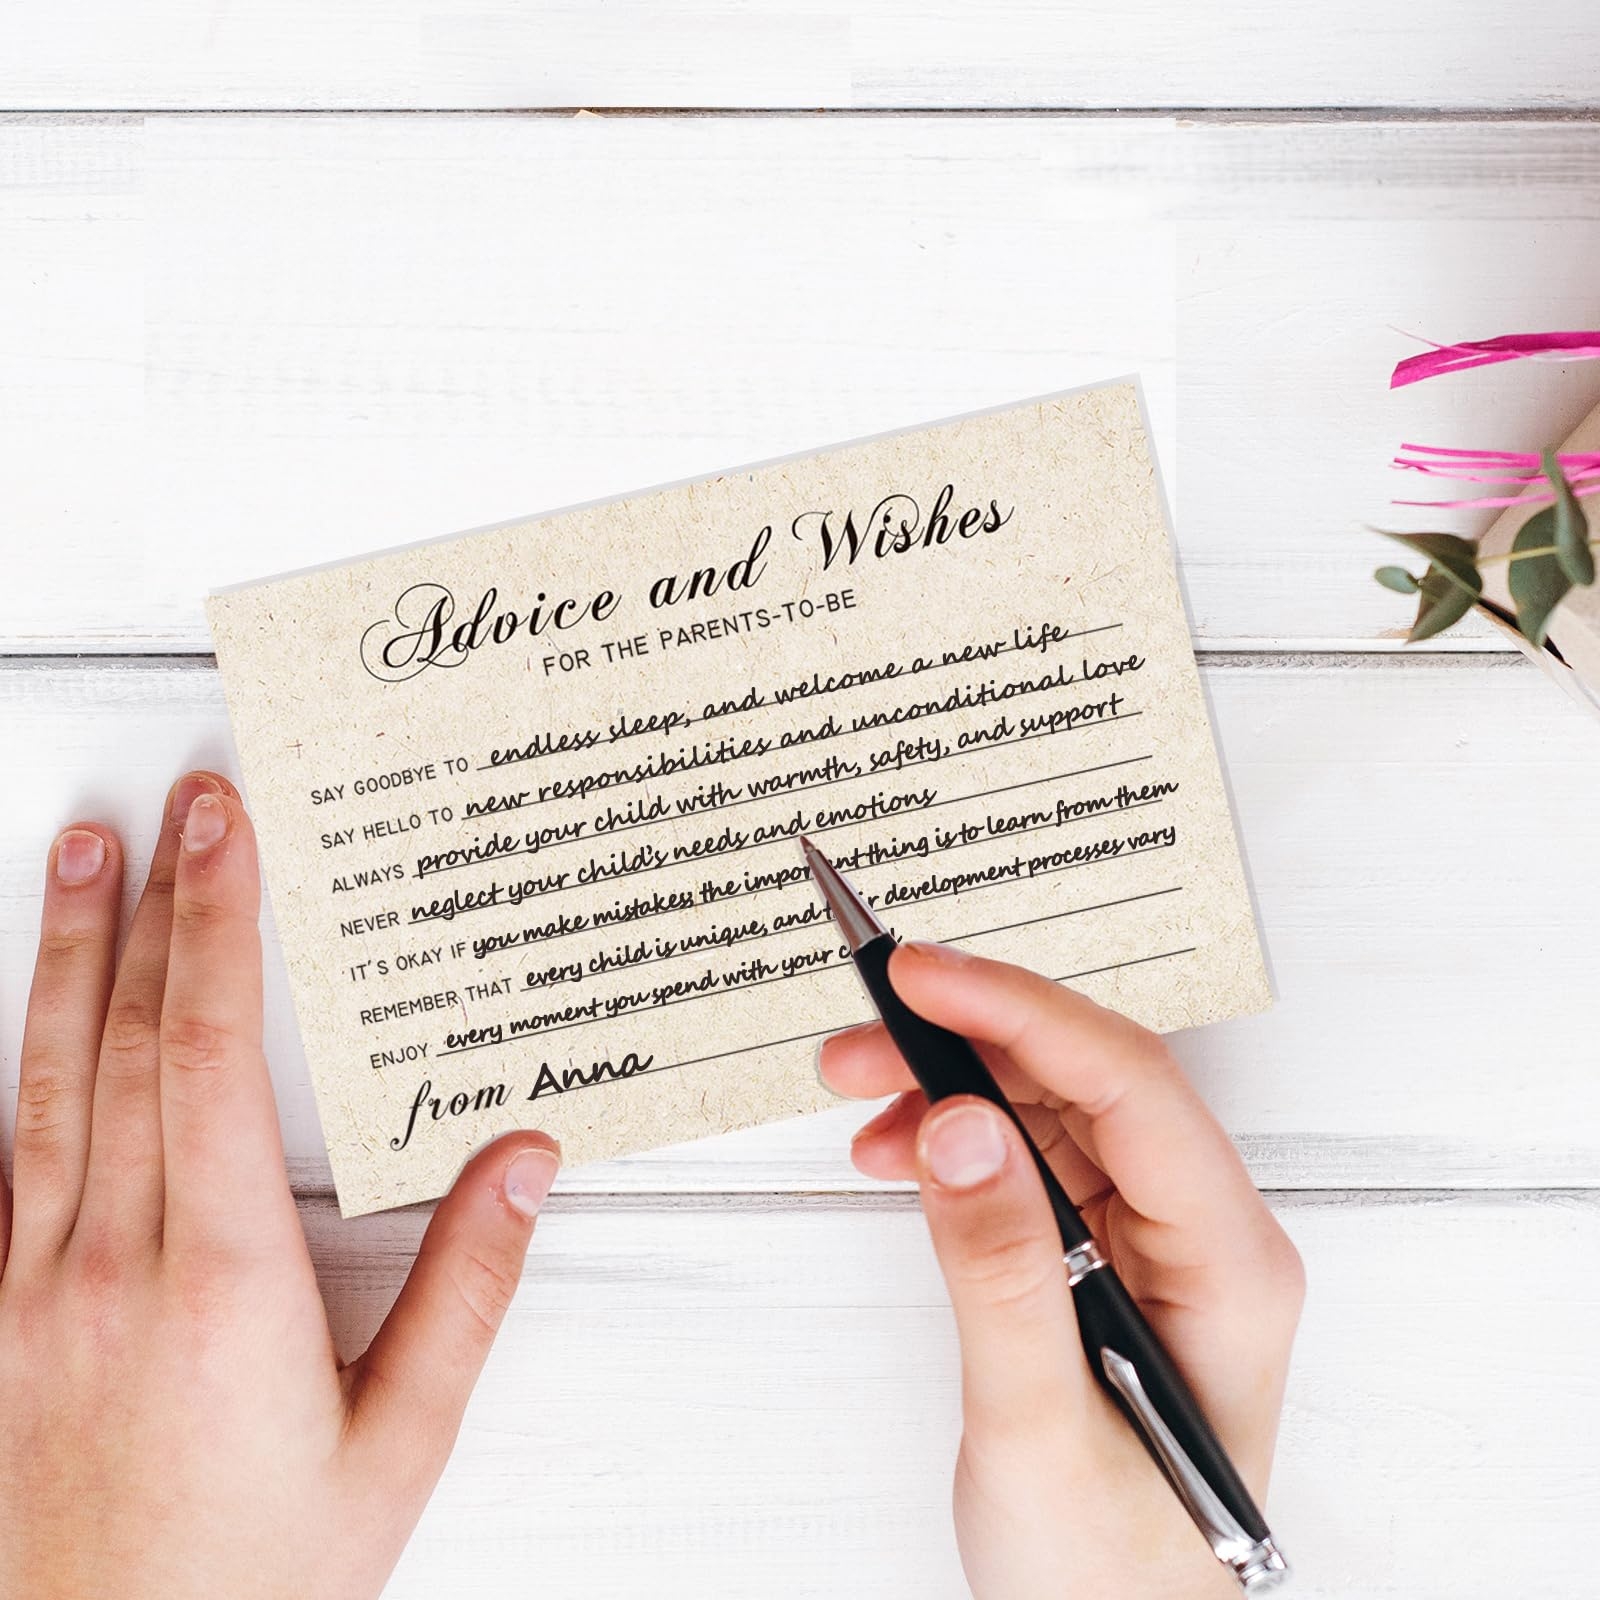 Advice and Wishes
FOR THE PARENTS-TO-BE
SAY GOODBYE TO endless sleep, and welcome a new life
SAY HELLO TO new responsibilities and unconditional love
ALWAYS provide your child with warmth, safety, and support
NEVER neglect your child's needs and emotions
IT'S OKAY IF you make mistakes; the important thing is to learn from them
REMEMBER THAT every child is unique, and their development processes vary
ENJOY every moment you spend with your child
from Anna